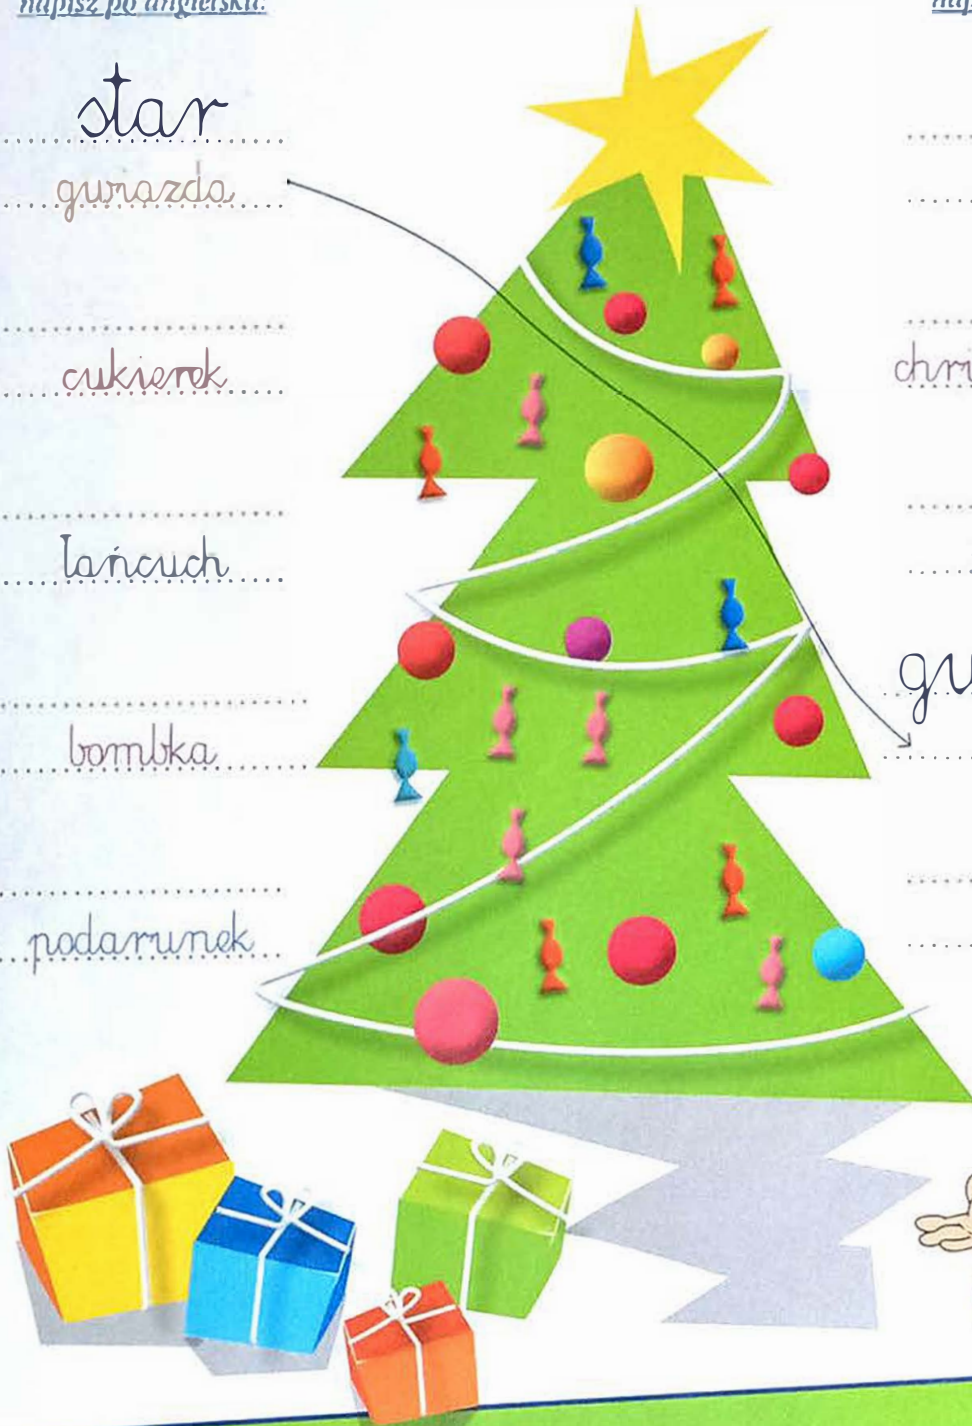 napisz po angielsku.
star
gwiazda
cukierek
łańcuch
bombka
podarunek